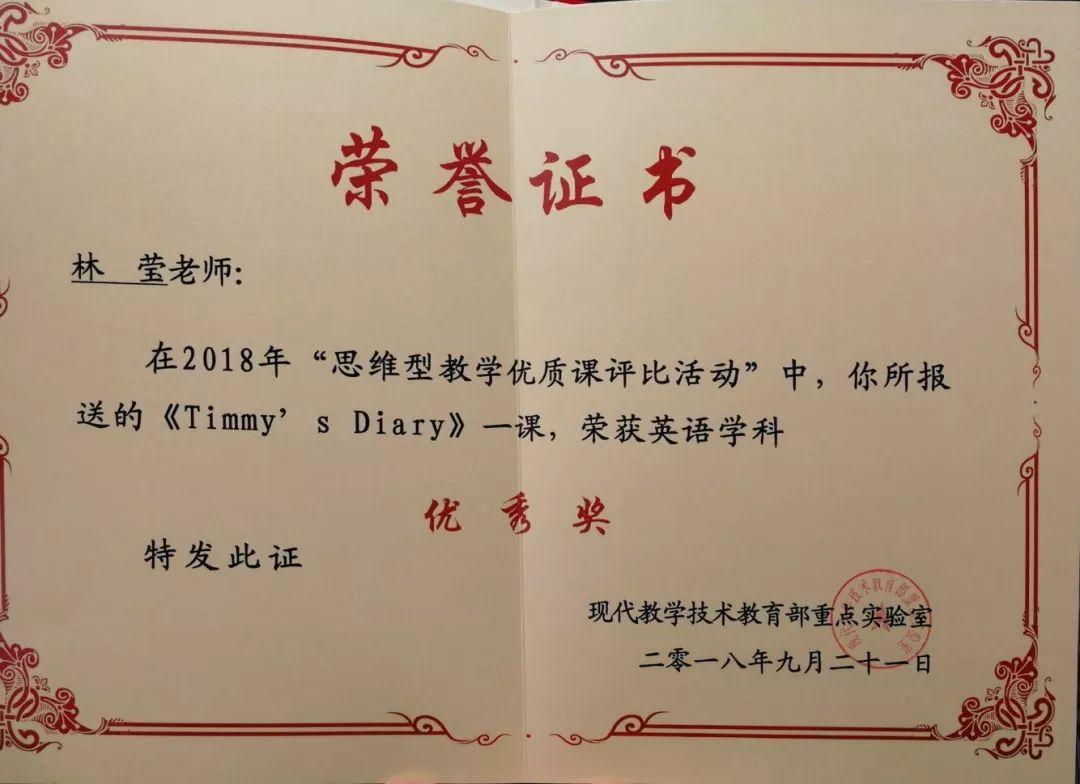 荣誉证书
林 莹老师：
在2018年“思维型教学优质课评比活动”中，你所报
送的《Timmy’s Diary》一课，荣获英语学科
优秀奖
特发此证
现代教学技术教育部重点实验室
二零一八年九月二十一日